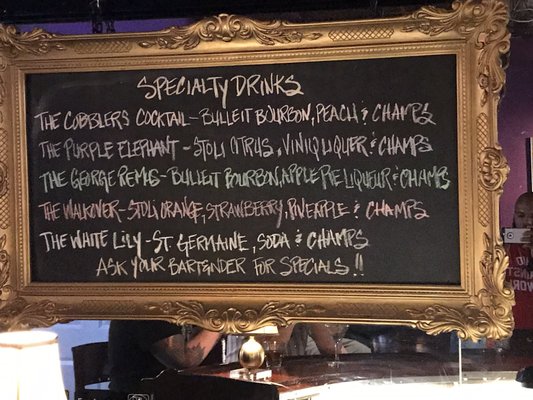 SPECIALTY DRINKS
THE COBBLERS COCKTAIL - BULLEIT BOURBON, PEACH & CHAMPS
THE PURPLE ELEPHANT - STOLI CITRUS, VINIQ LIQUER & CHAMPS
THE GEORGE REMUS - BULLEIT BOURBON, APPLE PIE LIQUEUR & CHAMPS
THE WALKOVER - STOLI ORANGE, STRAWBERRY, PINEAPPLE & CHAMPS
THE WHITE LILY - ST. GERMAINE, SODA & CHAMPS
ASK YOUR BARTENDER FOR SPECIALS!!